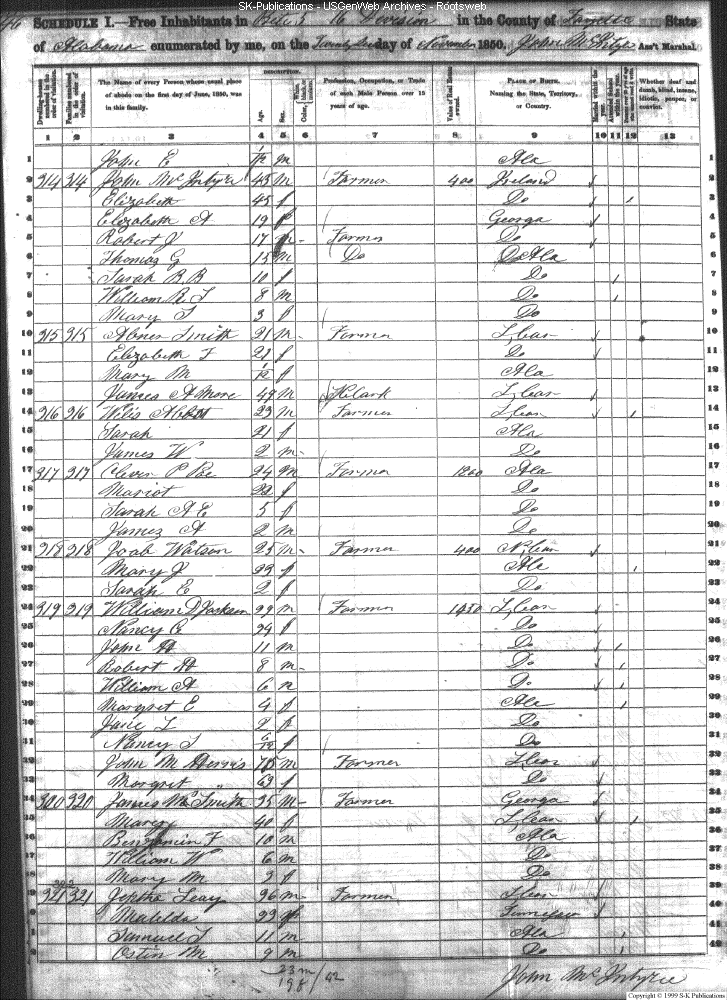 SK-Publications - USGenWeb Archives - Rootsweb
SCHEDULE I.—Free Inhabitants in Beat 5 in the County of State
of Alabama enumerated by me, on the day of November 1850. Ass't Marshal.
Dwelling-houses numbered in the order of visitation.
Families numbered in the order of visitation.
The Name of every Person whose usual place of abode on the first day of June, 1850, was in this family.
DESCRIPTION.
Age.
Sex.
Color, White, black, or mulatto.
Profession, Occupation, or Trade of each Male Person over 15 years of age.
Value of Real Estate owned.
PLACE OF BIRTH. Naming the State, Territory, or Country.
Married within the year.
Attended School within the year.
Whether deaf and dumb, blind, insane, idiotic, pauper, or convict.
1 2 3 4 5 6 7 8 9 10 11 12 13
1 John E 1/12 m Ala
2 314 314 John McIntyre 45 m Farmer 400 Ireland
3 Elizabeth 45 f Do
4 Elizabeth A 19 f Georga
5 Robert J 17 m Farmer Do
6 Thomas G 15 m Do Ala
7 Sarah B B 10 f Do
8 William R J 8 m Do
9 Mary J 3 f Do
10 315 315 Abner Smith 21 m Farmer S, Caro
11 Elizabeth F 21 f Do
12 Mary M /12 f Ala
13 James A More 49 m Klark S, Caro
14 316 316 Wilis Abbot 23 m Farmer S, Caro
15 Sarah 21 f Ala
16 James W 2 m Do
17 317 317 P Poe 24 m Farmer 1200 Ala
18 Mariot 22 f Do
19 Sarah A E 5 f Do
20 James A 2 m Do
21 318 318 Joab Watson 25 m Farmer 400 N, Caro
22 Mary J 22 f Ala
23 Sarah E 2 f Do
24 319 319 William D Jackson m Farmer S, Caro
25 Nancy E 34 f Do
26 John H 11 m Do
27 Robert H 8 m Do
28 William A 6 Do
29 Margret E 4 f Ala
30 Jane L 2 f Do
31 Nancy J /12 f Do
32 John M 75 m Farmer S Caro
33 Margret " 63 f Do
34 320 320 James M Smith 35 m Farmer Georga
35 40 f S, Caro
36 Benjamin F 10 m Ala
37 William W 6 m Do
38 Mary M 3 f Do
39 321 321 Jeptha Leay 36 m Farmer S Caro
40 Matilda 33 f Tennessee
41 Samuel S 11 m Ala
42 Ostin M 9 m Do
23 m
19 f / 42
John McIntyre
Copyright © 1999 S-K Publications